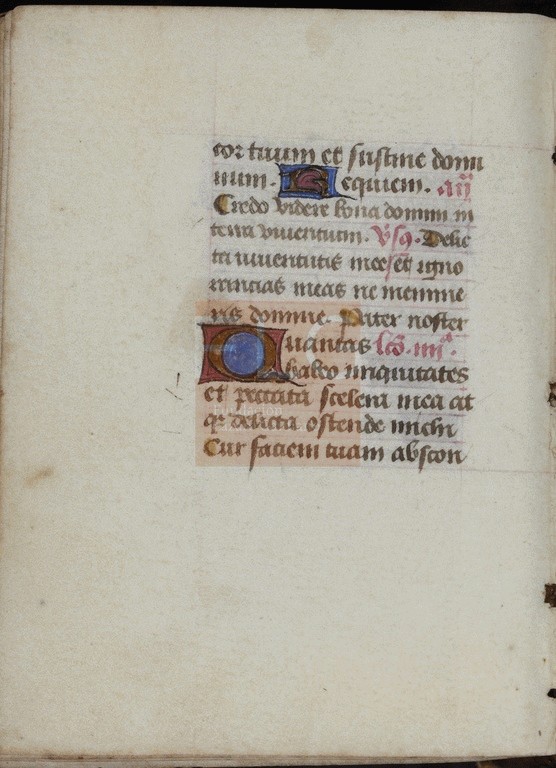 cor tuum et sustine domi
num. Requiem. an
Credo videre bona domini in
terra viventium. vsq. Delic
ta iuventutis mee et igno
rancias meas ne memine
ris domine. Pater noster
Quantas lco. iiii a.
habeo iniquitates
et peccata scelera mea at
q delicta ostende michi
Cur faciem tuam abscon